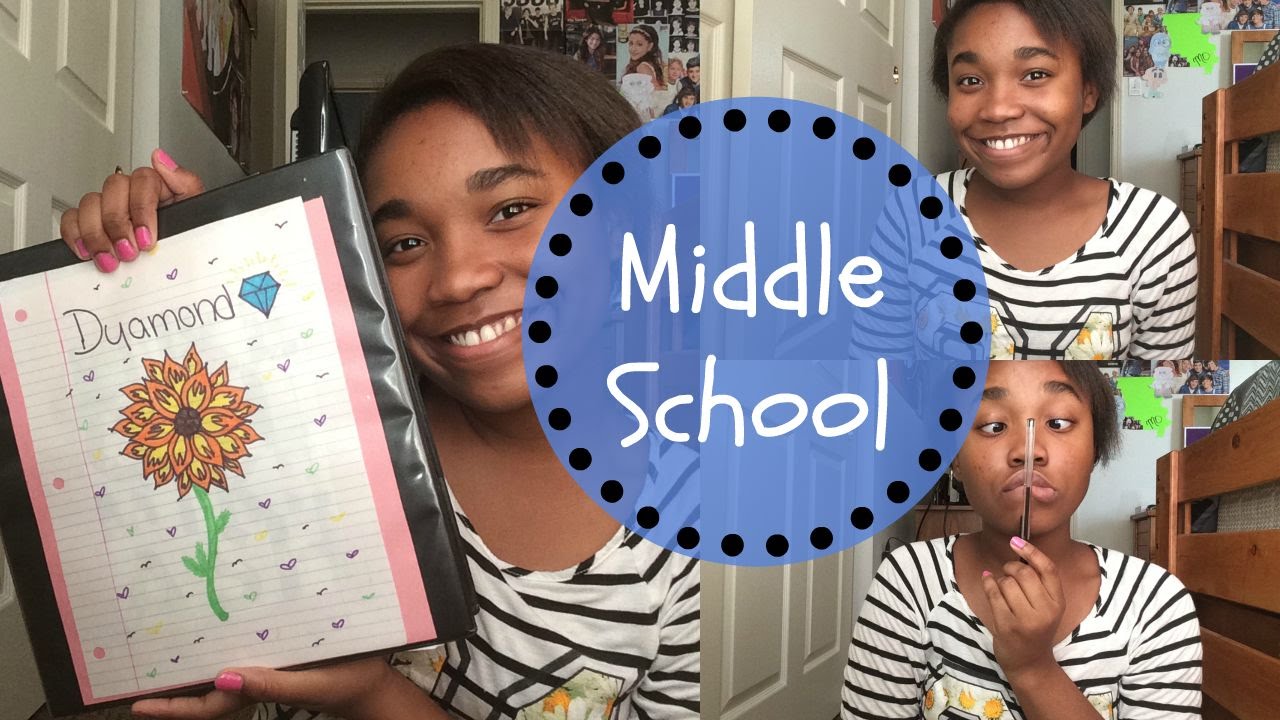 Dyamond
Middle
School